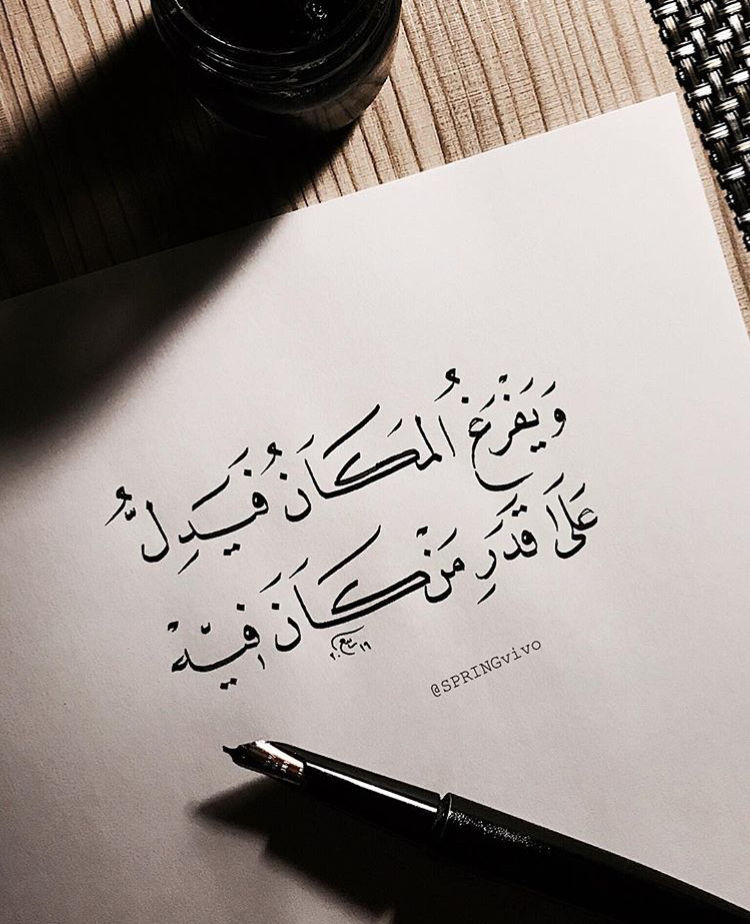 وَيَفْرَغُ المَكَانُ فَيَدِلُّ
عَلَى قَدَرِ مَنْ كَانَ فِيهْ
ربيع
@SPRINGvivo